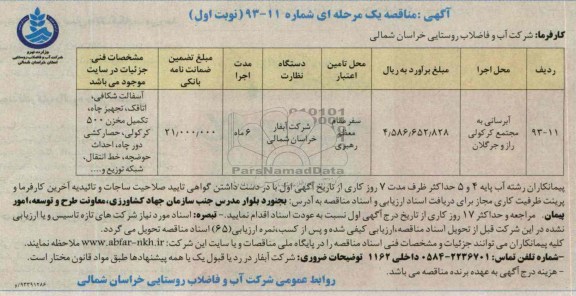 آگهی :مناقصه یک مرحله ای شماره ۱۱-۹۳ (نوبت اول)
کارفرما: شرکت آب و فاضلاب روستایی خراسان شمالی
وزارت نیرو
شرکت آب و فاضلاب روستایی
استان خراسان شمالی
ردیف
محل اجرا
مبلغ برآورد به ریال
محل تامین اعتبار
دستگاه نظارت
مدت اجرا
مبلغ تضمین ضمانت نامه بانکی
مشخصات فنی جزئیات در سایت موجود می باشد
۹۳-۱۱
آبرسانی به مجتمع کرکولی راز و جرگلان
۴,۵۸۶,۶۵۲,۸۲۸
سفر مقام معظم رهبری
شرکت آبفار خراسان شمالی
۶ ماه
۲۱,۰۰۰,۰۰۰
آسفالت شکافی، اتاقک، تجهیز چاه، تکمیل مخزن ۵۰۰ کرکولی، حصارکشی دور چاه، احداث حوضچه، خط انتقال، شبکه توزیع و....
پیمانکاران رشته آب پایه ۴ و ۵ حداکثر ظرف مدت ۷ روز کاری از تاریخ آگهی اول با در دست داشتن گواهی تایید صلاحیت ساجات و تائیدیه آخرین کارفرما و
پرینت ظرفیت کاری مجاز برای دریافت اسناد ارزیابی و اسناد مناقصه به آدرس: بجنورد بلوار مدرس جنب سازمان جهاد کشاورزی،معاونت طرح و توسعه،امور
پیمان مراجعه و حداکثر ۱۷ روز کاری از تاریخ درج آگهی اول نسبت به عودت اسناد اقدام نمایید. - تبصره: اسناد مورد نیاز شرکت های تازه تاسیس و یا ارزیابی
نشده در این شرکت قبل از تحویل اسناد مناقصه،ارزیابی کیفی شده و پس از کسب،نمره ارزیابی (۶۵) اسناد مناقصه تحویل می گردد.
کلیه پیمانکاران می توانند جزئیات و مشخصات فنی اسناد مناقصه را در پایگاه ملی مناقصات و یا سایت این شرکت: www.abfar-nkh.ir ملاحظه نمایند.
-شماره تلفن تماس: ۲۲۳۶۷۰۱-۰۵۸۴ داخلی ۱۱۶۲ توضیحات ضروری: شرکت آبفار در رد یا قبول یک یا همه پیشنهادها طبق مواد قانون مختار است.
- هزینه درج آگهی به عهده برنده مناقصه می باشد.
روابط عمومی شرکت آب و فاضلاب روستایی خراسان شمالی
ParsNamadData